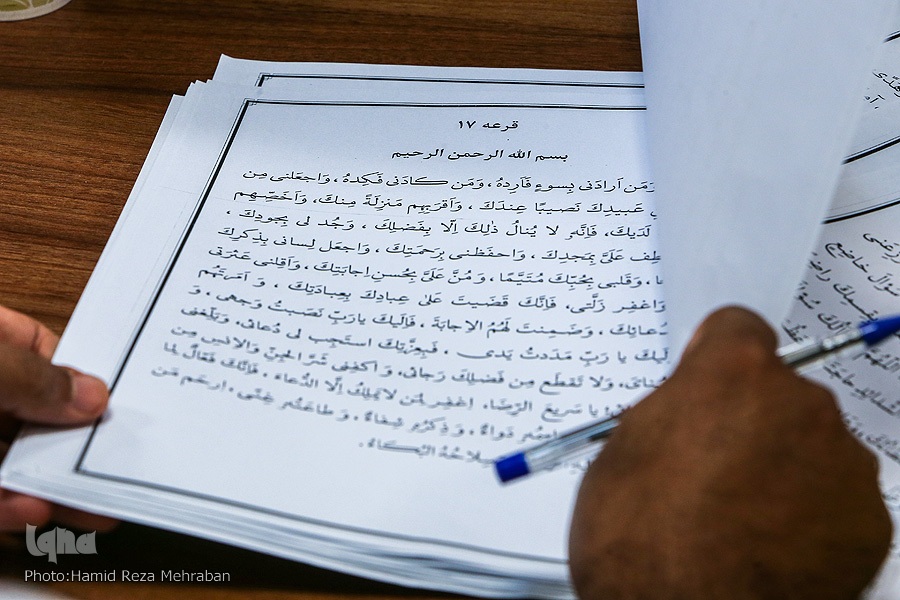 قرعه ۱۷
بسم الله الرحمن الرحیم
وَمَن اَرادَنی بِسوءٍ فَاَرِدهُ ، وَمَن کادَنی فَکِدهُ ، وَاجعَلنی مِن
عَبیدِكَ نَصیبًا عِندَكَ ، وَاَقرَبِهِم مَنزِلَةً مِنكَ، وَاَخَصِّهِم
لَدَیكَ، فَاِنَّهُ لا یُنالُ ذٰلِكَ اِلّا بِفَضلِكَ ، وَجُد لی بِجودِكَ ،
عَلَیَّ بِمَجدِكَ، وَاحفَظنی بِرَحمَتِكَ ، وَاجعَل لِسانی بِذِکرِكَ
وَقَلبی بِحُبِّكَ مُتَیَّمًا ، وَمُنَّ عَلَیَّ بِحُسنِ اِجابَتِكَ ، وَاَقِلنی عَثرَتی
وَاغفِر زَلَّتی، فَاِنَّكَ قَضَیتَ عَلیٰ عِبادِكَ بِعِبادَتِكَ ، وَ اَمَرتَهُم
بِدُعائِكَ ، وَضَمِنتَ لَهُمُ الاِجابَةَ ، فَاِلَیكَ یا رَبِّ نَصَبتُ وَجهی ، وَ
اِلَیكَ یا رَبِّ مَدَدتُ یَدی ، فَبِعِزَّتِكَ استَجِب لی دُعائی، وَبَلِّغنی
مُنایَ، وَلا تَقطَع مِن فَضلِكَ رَجائی، وَ اکفِنی شَرَّ الجِنِّ وَالاِنسِ مِن
یا سَریعَ الرِّضا، اِغفِر لِمَن لا یَملِكُ اِلَّا الدُّعاءَ ، فَاِنَّكَ فَعّالٌ لِما
دَواءٌ ، وَ ذِکرُهُ شِفاءٌ ، وَ طاعَتُهُ غِنًی ، اِرحَم مَن
سِلاحُهُ البُکاءُ.
Iqna
Photo:Hamid Reza Mehraban